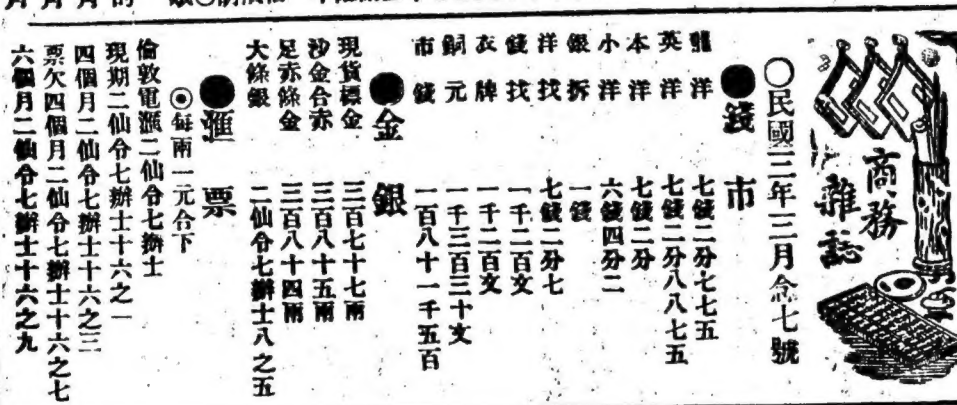 商務
雜誌
○民國三年三月念七號
●錢市
龍洋 七錢二分七七五
英洋 七錢二分八八七五
本洋 七錢二分
小洋 六錢四分二
銀拆 一錢
洋找 七錢二分七
錢找 一千二百文
衣牌 一千二百文
銅元 一千三百三十文
市錢 一百八十一千五百
●金銀
現貨標金 三百七十七兩
沙金合赤 三百八十五兩
足赤條金 三百八十四兩
大條銀 二仙令七辦士八之五
●滙票
◉每兩一元合下
倫敦電滙二仙令七辦士
現期二仙令七辦士十六之一
四個月二仙令七辦士十六之三
票欠四個月二仙令七辦士十六之七
六個月二仙令七辦士十六之九